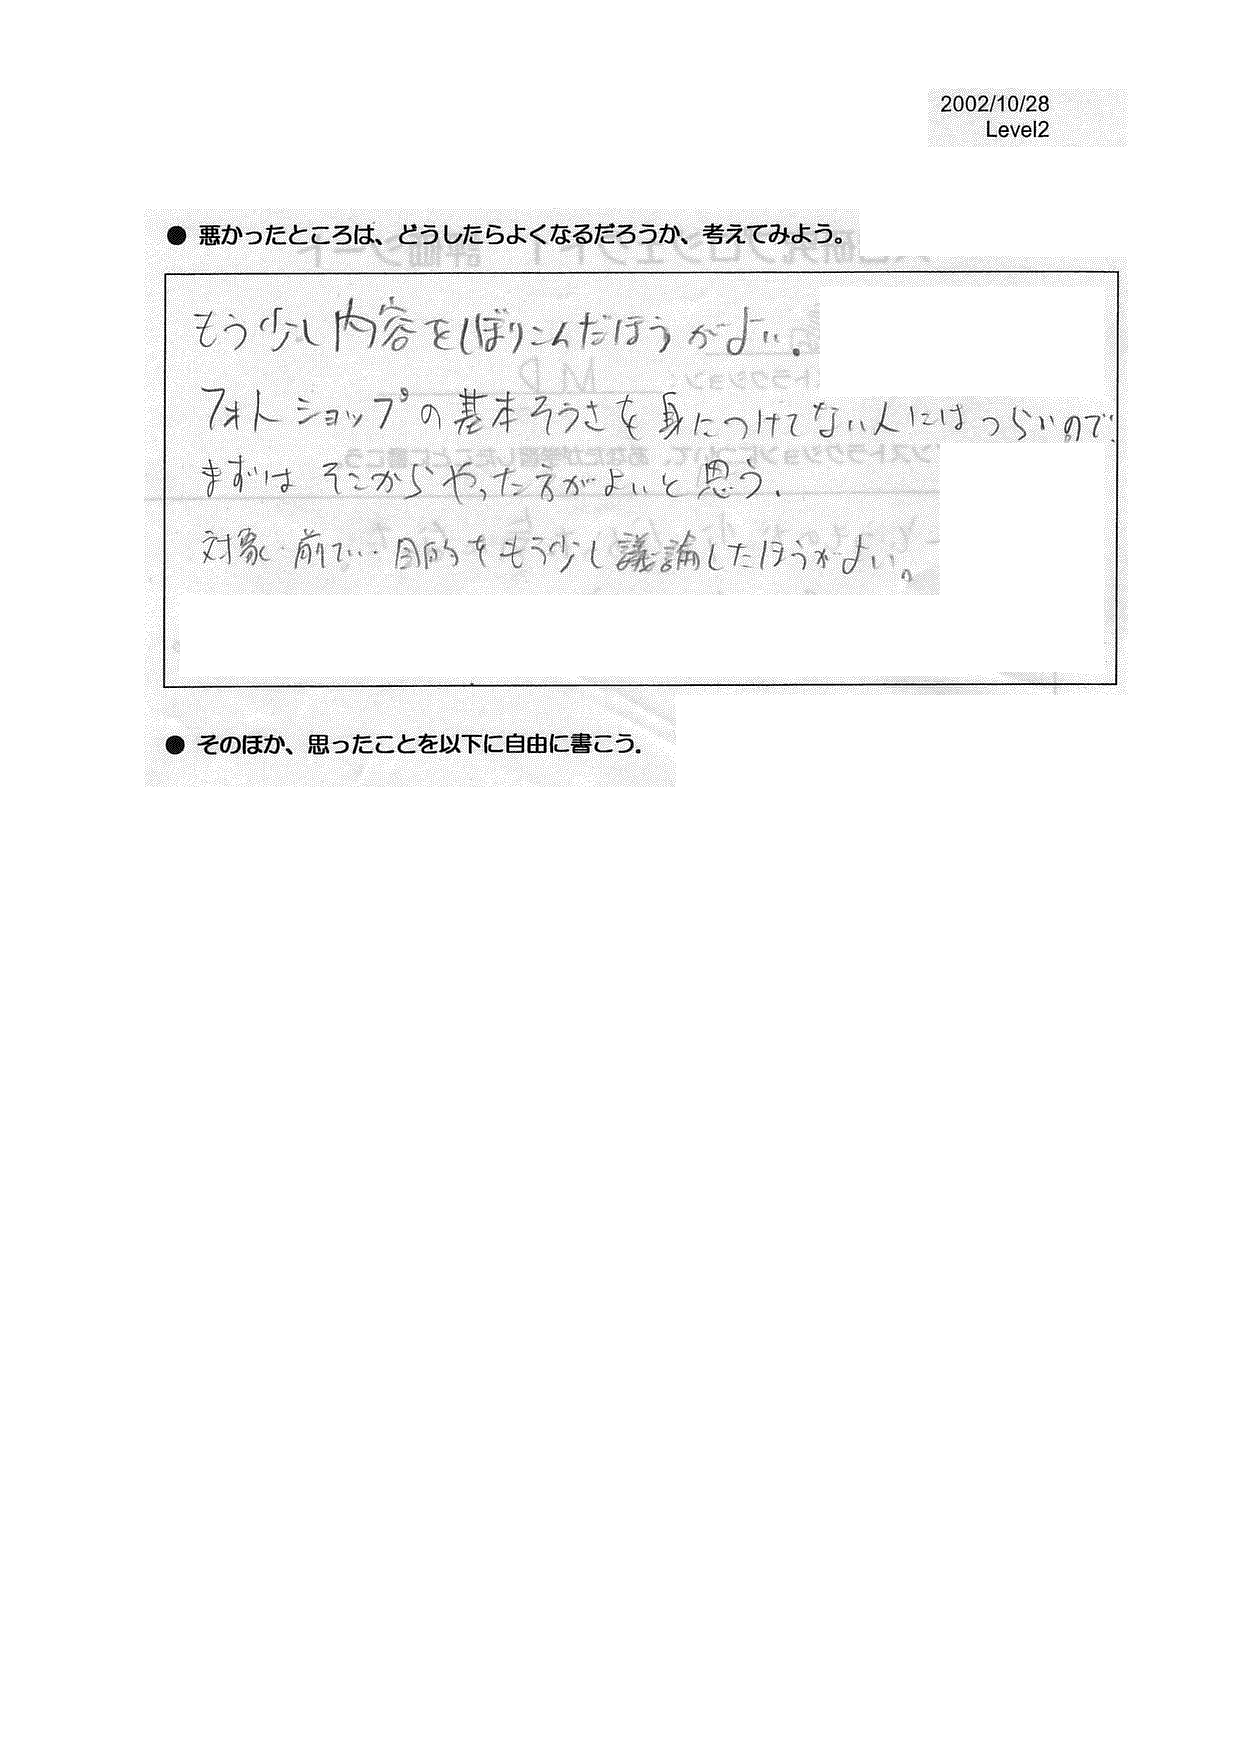 2002/10/28
Level2
● 悪かったところは、どうしたらよくなるだろうか、考えてみよう。
もう少し内容をしぼりこんだほうがよい。
フォトショップの基本そうさを身につけてない人にはつらいので、
まずはそこからやった方がよいと思う。
対象・前てい・目的をもう少し議論したほうがよい。
● そのほか、思ったことを以下に自由に書こう。